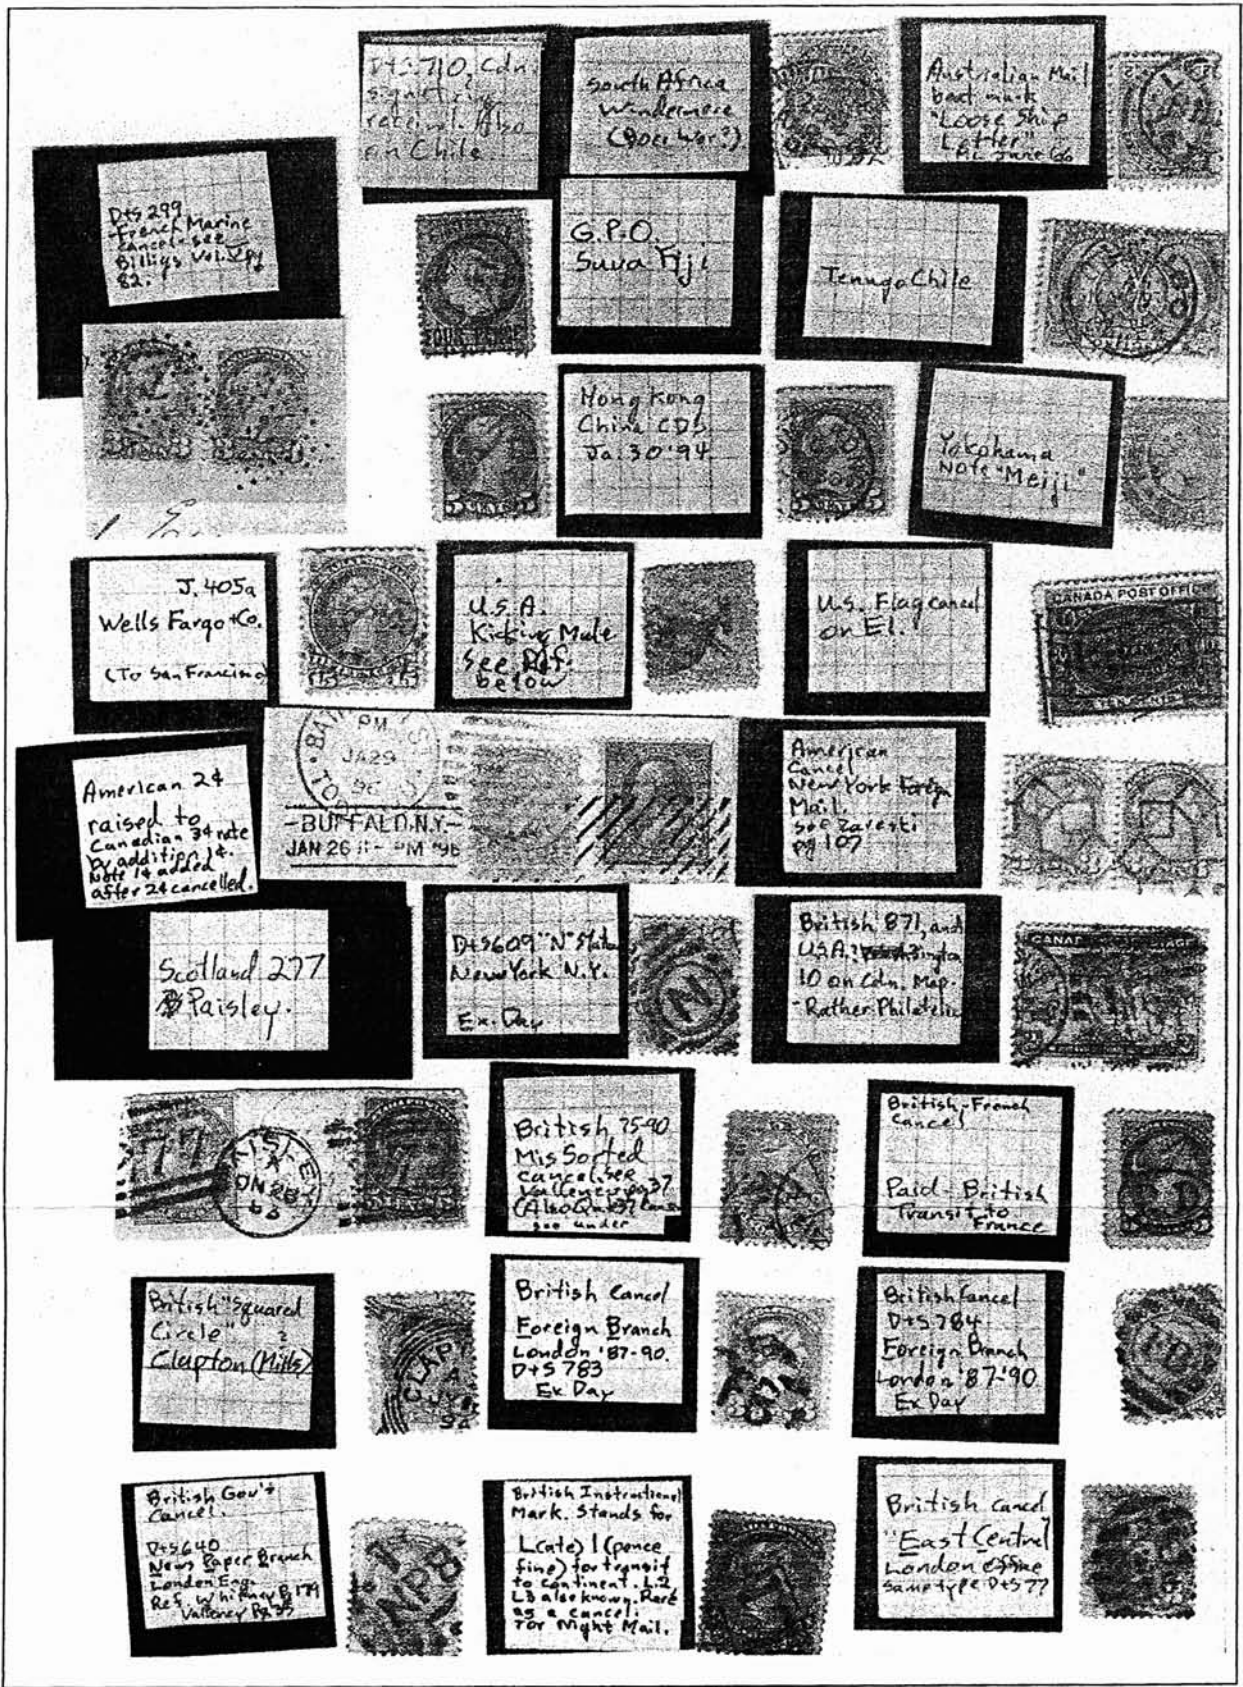 D+S 710, Cdn.
Also
on Chile
South Africa
Windermere
(Boer War?)
Australian Mail
boat mark
"Loose Ship
Letter"
D+S 299
French Marine
cancel - see
Billigs Vol. V pg
82.
G.P.O.
Suva Fiji
Tenugo Chile
Hong Kong
China CDS
Ja. 30 '94
5 CENTS 5
5 CENTS 5
Yokohama
NOTE "Meiji"
J. 405a
Wells Fargo + Co.
(To San Francisco)
U.S.A.
Kicking Mule
See Ref.
below
U.S. Flag cancel
on El.
CANADA POST OFFICE
American 2¢
raised to
Canadian 3¢ rate
by addition 1¢.
Note 1¢ added
after 2¢ cancelled.
PM
JA 29
96
-BUFFALO, N.Y.-
JAN 26 11 - PM '96
American
Cancel
New York Foreign
Mail.
See Zareski
pg 107
Scotland 277
Paisley.
D+S 609 "N" Station
New York N.Y.
Ex. Day
N
British 871, and
U.S.A.
10 on Cdn. Map.
- Rather Philatelic
77
British 75-90
Mis Sorted
cancel. see
Vallency pg 37
British-French
Cancel
Paid - British
Transit to
France
British "Squared
Circle" ?
Clapton (Mills)
CLAPT
A
JY
92
British Cancel
Foreign Branch
London '87-90.
D+S 783
Ex Day
British Cancel
D+S 784
Foreign Branch
London '87-'90
Ex Day
British Gov't
Cancel.
D+S 640
News Paper Branch
London Eng.
Ref. Whitney P. 179
Vallency Pg 35
1
NPB
British Instructional
Mark. Stands for
L(ate) 1 (pence
fine) for transit
to continent. L2
L3 also known. Rare
as a cancel.
For Night Mail.
British cancel
"East Central
London office
same type D+S 77